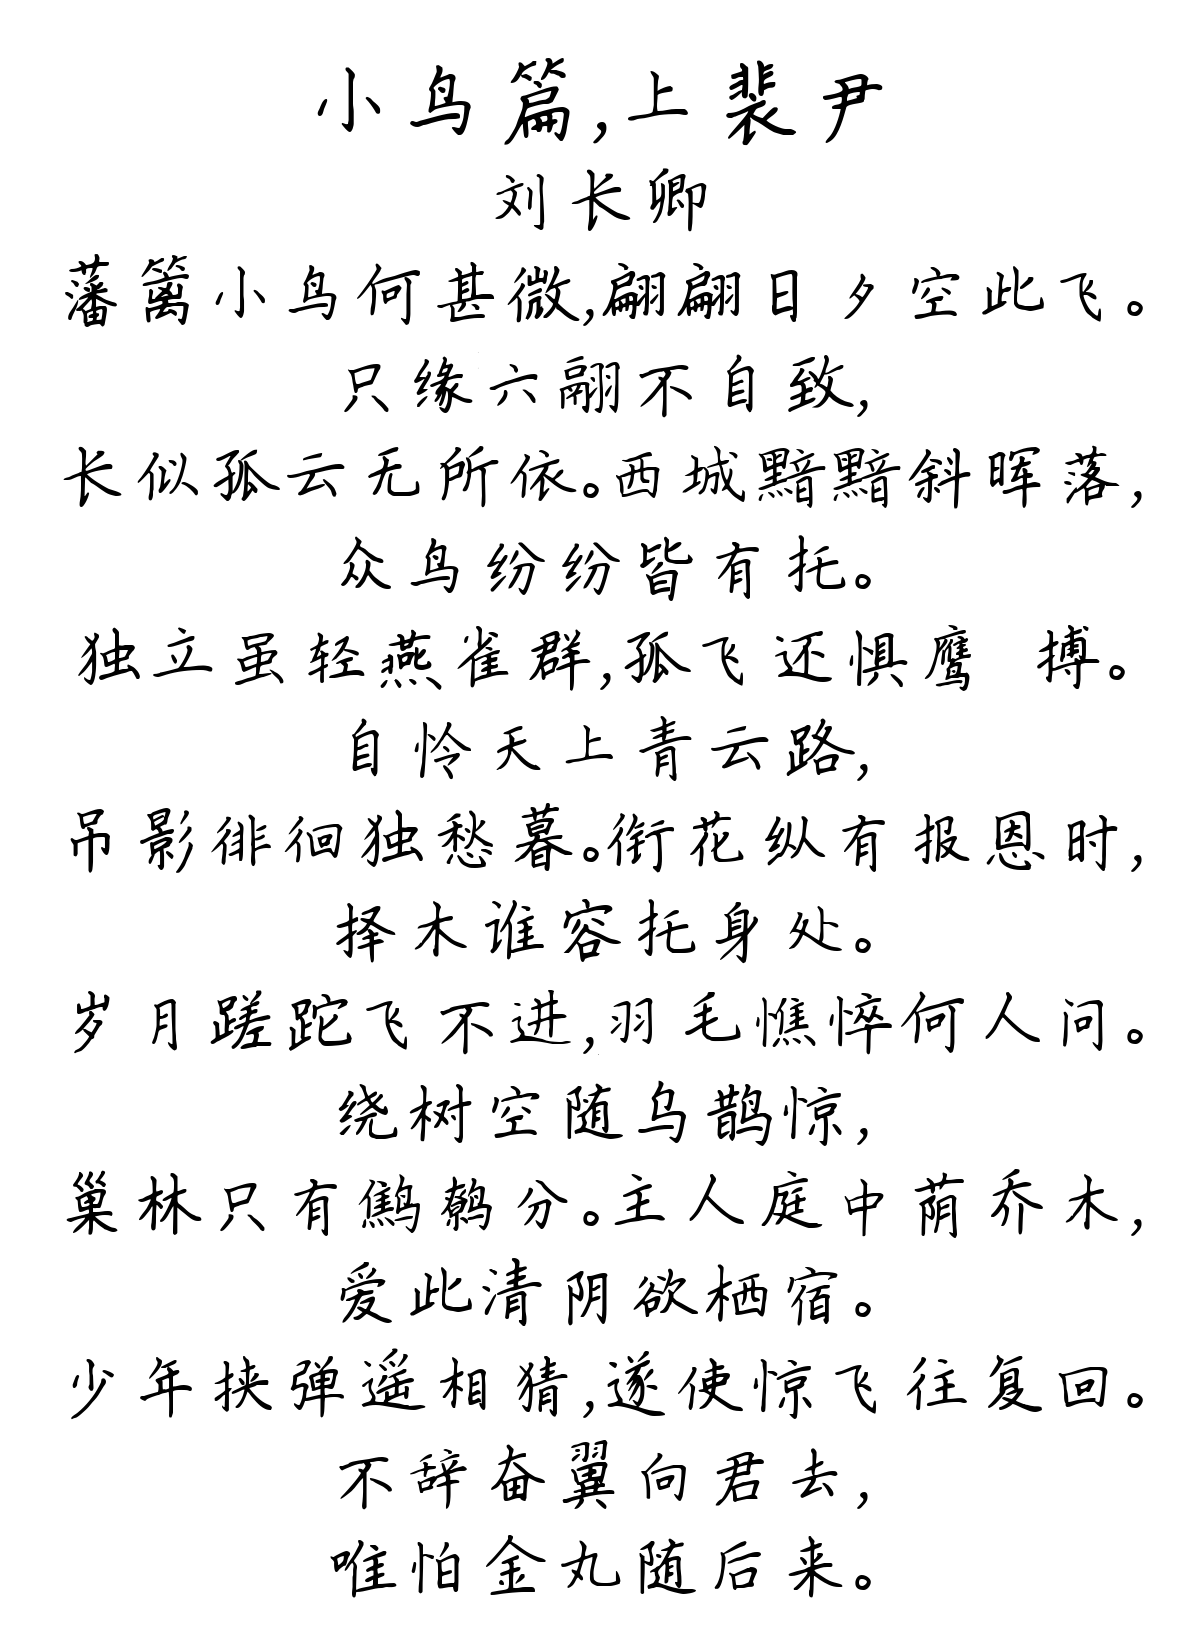 小鸟篇,上裴尹
刘长卿
藩篱小鸟何甚微,翩翩日夕空此飞。
只缘六翮不自致,
长似孤云无所依。西城黯黯斜晖落,
众鸟纷纷皆有托。
独立虽轻燕雀群,孤飞还惧鹰 搏。
自怜天上青云路,
吊影徘徊独愁暮。衔花纵有报恩时,
择木谁容托身处。
岁月蹉跎飞不进,羽毛憔悴何人问。
绕树空随乌鹊惊,
巢林只有鹪鹩分。主人庭中荫乔木,
爱此清阴欲栖宿。
少年挟弹遥相猜,遂使惊飞往复回。
不辞奋翼向君去,
唯怕金丸随后来。